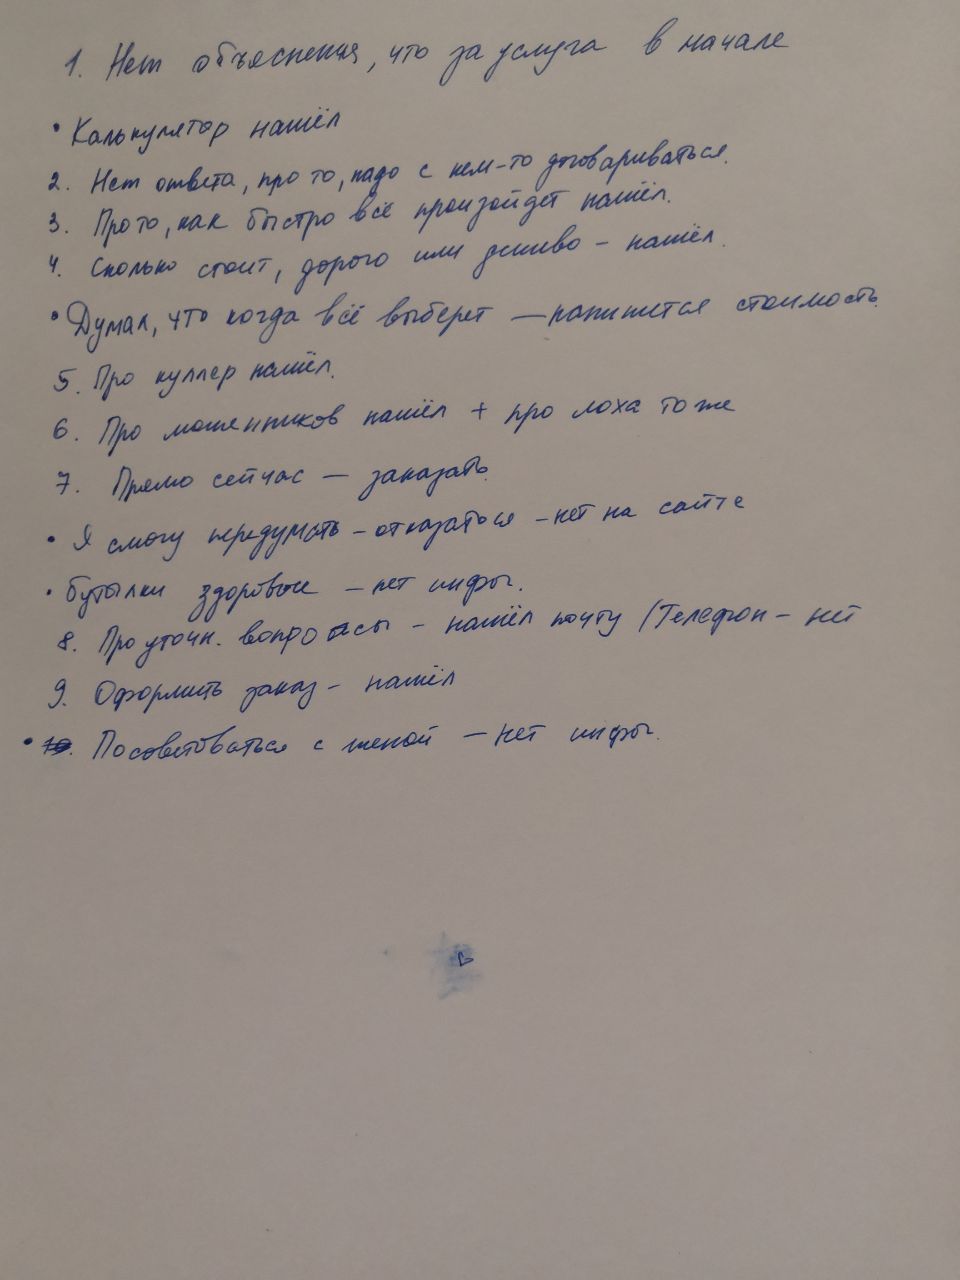 1. Нет объяснения, что за услуга в начале
• Калькулятор нашёл
2. Нет ответа, про то, надо с кем-то договариваться.
3. Про то, как быстро всё произойдет нашёл.
4. Сколько стоит, дорого или дешево – нашёл.
• Думал, что когда всё выберет — напишется стоимость.
5. Про куллер нашёл.
6. Про мошенников нашёл + про лоха тоже
7. Прямо сейчас — заказать.
• Я смогу передумать – отказаться – нет на сайте
• Бутылки здоровые – нет инфы.
8. Про уточн. вопросы – нашёл почту / Телефон – нет
9. Оформить заказ – нашёл
• 10. Посоветоваться с женой – нет инфы.